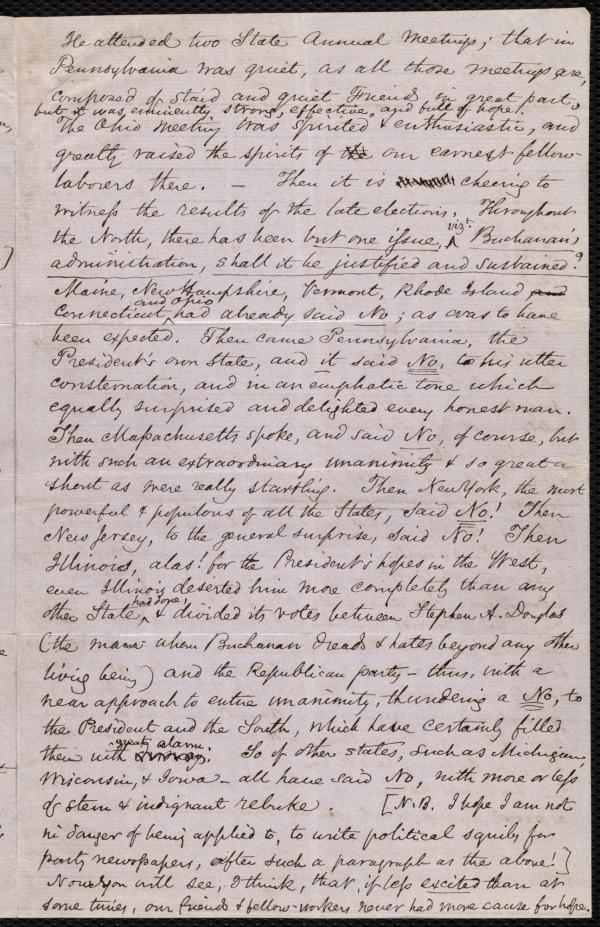 He attended two State Annual Meetings; that in
Pennsylvania was quiet, as all those meetings are,
composed of staid and quiet Friends in great part,
but it was eminently strong, effective, and full of hope.
The Ohio Meeting was spirited & enthusiastic, and
greatly raised the spirits of our earnest fellow-
laborers there. — Then it is cheering to
witness the results of the late elections. Throughout
the North, there has been but one issue, vizt. Buchanan's
administration, shall it be justified and sustained?
Maine, New Hampshire, Vermont, Rhode Island and
Connecticut, and Ohio had already said No; as was to have
been expected. Then came Pennsylvania, the
President's own State, and it said No, to his utter
consternation, and in an emphatic tone which
equally surprised and delighted every honest man.
Then Massachusetts spoke, and said No, of course, but
with such an extraordinary unanimity & so great a
shout as were really startling. Then New York, the most
powerful & populous of all the States, said No! Then
New Jersey, to the general surprise, said No! Then
Illinois, alas! for the President's hopes in the West,
even Illinois deserted him more completely than any
other State had done, & divided its votes between Stephen A. Douglas
(the man whom Buchanan dreads & hates beyond any other
living being) and the Republican party – thus, with a
near approach to entire unanimity, thundering a No, to
the President and the South, which have certainly filled
them with great alarm. So of other states, such as Michigan,
Wisconsin, & Iowa – all have said No, with more or less
of stern & indignant rebuke. [N.B. I hope I am not
in danger of being applied to, to write political squibs for
party newspapers, after such a paragraph as the above!]
Now you will see, I think, that, if less excited than at
some times, our friends & fellow-workers never had more cause for hope.